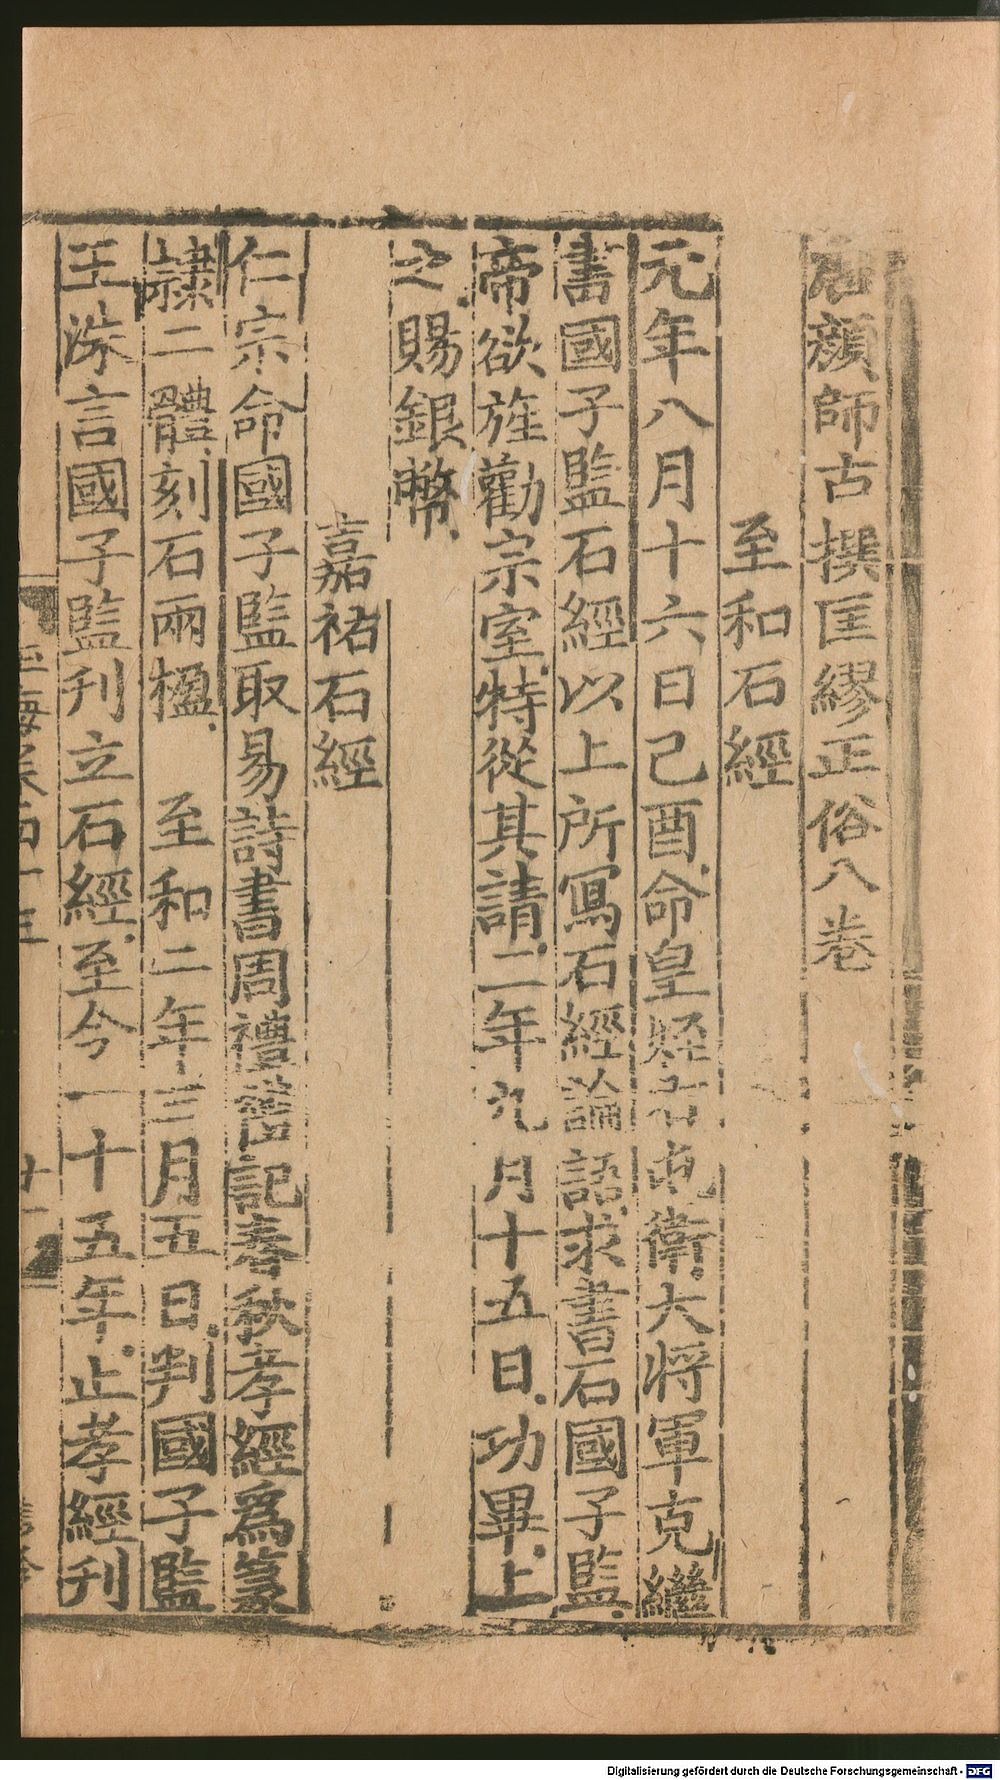 唐顏師古撰匡繆正俗八卷
至和石經
元年八月十六日己酉命皇姪右屯衛大將軍克繼
書國子監石經以上所寫石經論語求書石國子監
帝欲旌勸宗室特從其請二年九月十五日功畢上
之賜銀幣
嘉祐石經
仁宗命國子監取易詩書周禮禮記春秋孝經爲篆
隷二體刻石兩楹 至和二年三月五日判國子監
王洙言國子監刊立石經至今一十五年止孝經刊
Digitalisierung gefördert durch die Deutsche Forschungsgemeinschaft - DFG